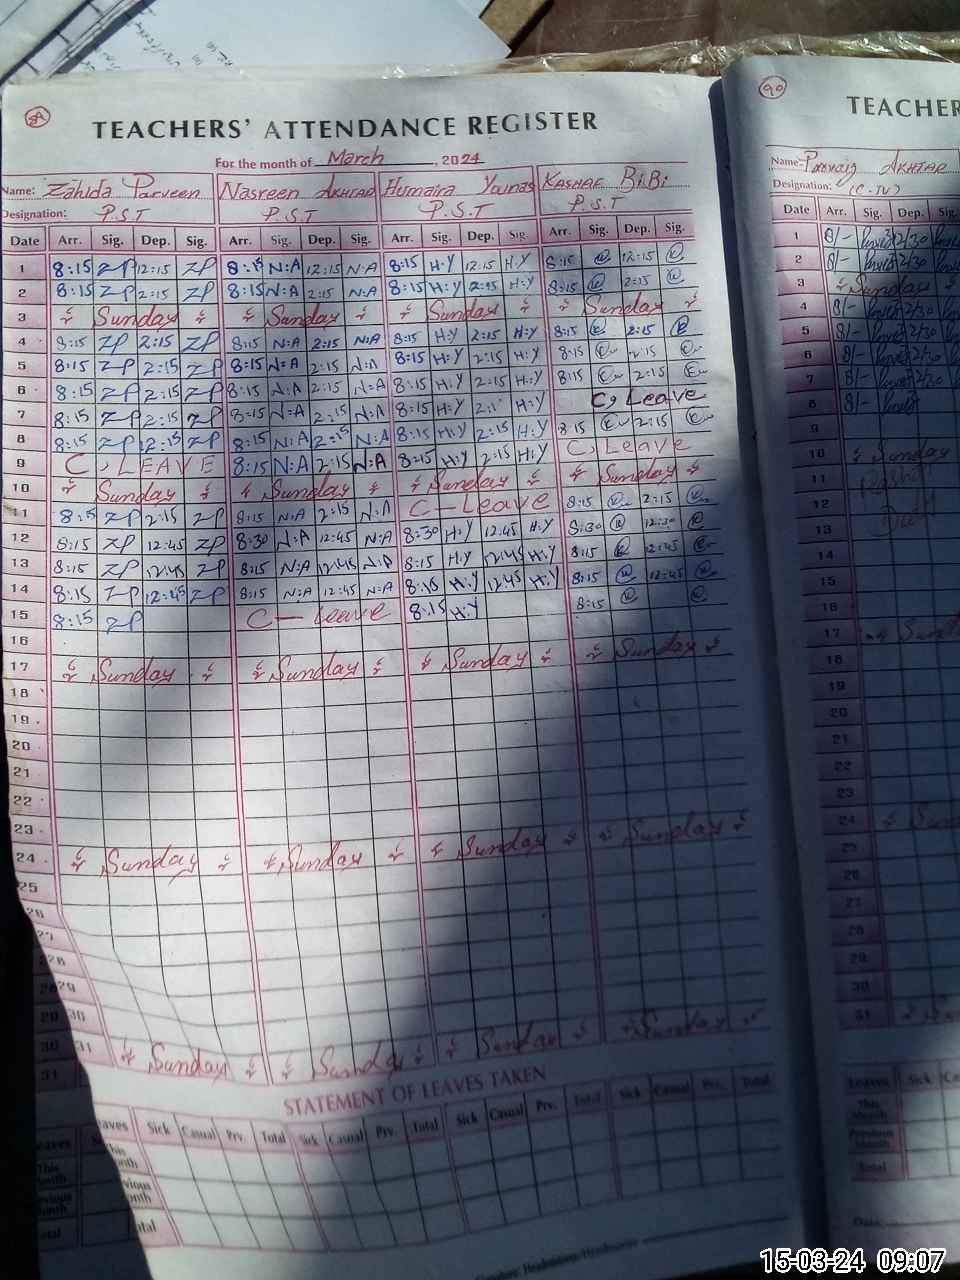 89
TEACHERS' ATTENDANCE REGISTER
For the month of March, 2024
Name: Zahida Parveen Nasreen AKHTAR Humaira Younas KASHAF BiBi
Designation: P.S.T P.S.T P.S.T P.S.T
Date Arr. Sig. Dep. Sig. Arr. Sig. Dep. Sig. Arr. Sig. Dep. Sig. Arr. Sig. Dep. Sig.
1 8:15 ZP 12:15 ZP 8:15 N:A 12:15 N:A 8:15 H:Y 12:15 H:Y 8:15 12:15
2 8:15 ZP 2:15 ZP 8:15 N:A 2:15 N:A 8:15 H:Y 2:15 H:Y 8:15 2:15
3 Sunday Sunday Sunday Sunday
4 8:15 ZP 2:15 ZP 8:15 N:A 2:15 N:A 8:15 H:Y 2:15 H:Y 8:15 2:15
5 8:15 ZP 2:15 ZP 8:15 N:A 2:15 N:A 8:15 H:Y 2:15 H:Y 8:15 2:15
6 8:15 ZP 2:15 ZP 8:15 N:A 2:15 N:A 8:15 H:Y 2:15 H:Y 8:15 2:15
7 8:15 ZP 2:15 ZP 8:15 N:A 2:15 N:A 8:15 H:Y H:Y C, Leave
8 8:15 ZP 12:15 ZP 8:15 N:A 2:15 N:A 8:15 H:Y 2:15 H:Y 8:15 2:15
9 C, LEAVE 8:15 N:A 2:15 N:A 8:15 H:Y 2:15 H:Y C, Leave
10 Sunday Sunday Sunday Sunday
11 8:15 ZP 2:15 ZP 8:15 N:A 2:15 N:A C-Leave 8:15 2:15
12 8:15 ZP 12:45 ZP 8:30 N:A 12:45 N:A 8:30 H:Y 12:45 H:Y 8:30 12:30
13 8:15 ZP 12:45 ZP 8:15 N:A 12:45 N:A 8:15 H:Y 12:45 H:Y 8:15 12:45
14 8:15 ZP 12:45 ZP 8:15 N:A 12:45 N:A 8:15 H:Y 12:45 H:Y 8:15 12:45
15 8:15 ZP C-Leave 8:15 H:Y 8:15
16
17 Sunday Sunday Sunday Sunday
18
19
20
21
22
23
24 Sunday Sunday Sunday Sunday
25
26
27
28
29
30
31 Sunday Sunday Sunday Sunday
STATEMENT OF LEAVES TAKEN
Sick Casual Prv. Total Sick Casual Prv. Total Sick Casual Prv. Total Sick Casual Prv. Total
90
TEACHER
Name: AKHTAR
Designation: (C.TV)
Date Arr. Sig. Dep. Sig.
1 8/- 2/30
2 8/- 2/30
3 Sunday
4 8/- 2/30
5 8/- 2/30
6 8/- 2/30
7 8/- 2/30
8 8/-
9
10 Sunday
11
12
13
14
15
16
17
18
19
20
21
22
23
24
25
26
27
28
29
30
31
Leaves Sick
This Month
Previous Month
Total
15-03-24 09:07